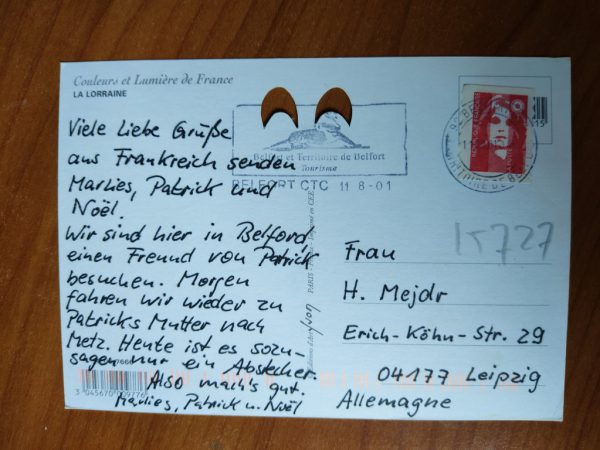 Couleurs et Lumière de France
LA LORRAINE
Viele Liebe Grüße
aus Frankreich senden
Marlies, Patrick und
Nöël.
Wir sind hier in Belford,
einen Freund von Patrick
besuchen. Morgen
fahren wir wieder zu
Patricks Mutter nach
Metz. Heute ist es sozu-
sagen nur ein Abstecher.
Also mach's gut.
Marlies, Patrick u. Nöël
Belfort et Territoire de Belfort
Tourisme
BELFORT CTC 11 8-01
15727
Frau
H. Mejdr
Erich-Köhn-Str. 29
04177 Leipzig
Allemagne